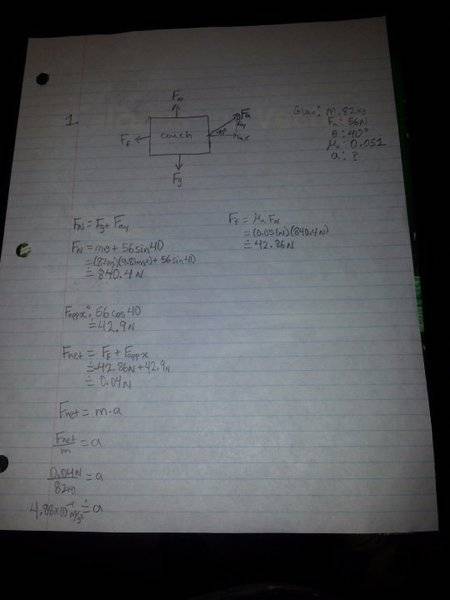 1.
Fₙ
Fₐ
40°
couch
F_f
F_g
Given: m: 82kg
Fₐ: 56N
θ: 40°
μₖ: 0.051
a: ?
F_N = F_g + F_ay
F_N = mg + 56 sin 40
= (82kg)(9.81m/s²) + 56 sin 40
≐ 840.4 N
F_f = μₖ F_N
= (0.051)(840.4 N)
≐ 42.86 N
F_appx: 56 cos 40
≐ 42.9 N
F_net = F_f + F_appx
≐ -42.86N + 42.9N
≐ 0.04N
F_net = m·a
F_net/m = a
0.04N/82kg = a
4.88x10⁻⁴ m/s² ≐ a